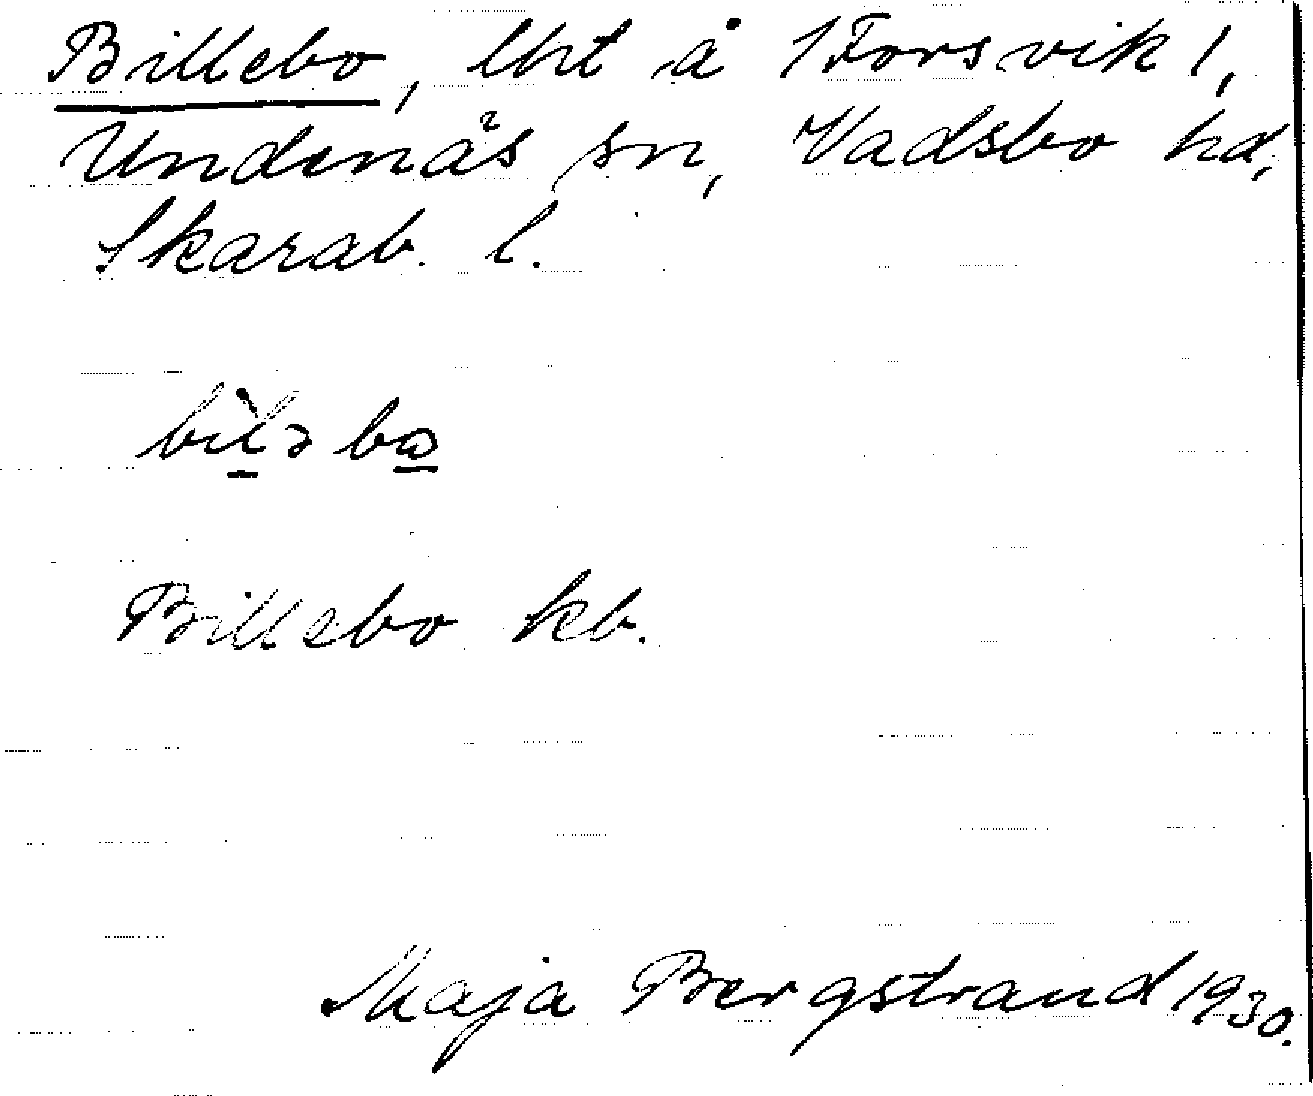 Billebo, lht å /Forsvik/,
Undenäs sn, Vadsbo hd,
Skarab. l.
Billebo kb.
Maja Bergstrand 1930.